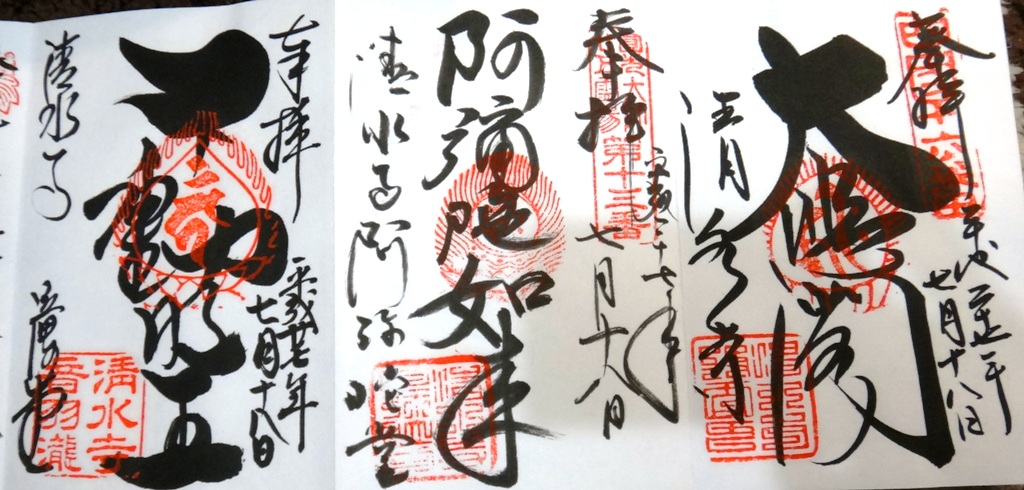 奉拝
平成二十七年
七月十八日
大悲閣
清水寺
奉拝
圓光大師霊場第十三番
平成二十七年
七月十八日
阿彌陀如来
清水寺阿弥陀堂
奉拝
平成廿七年
七月十八日
不動明王
清水寺
音羽の滝
清水寺
音羽瀧